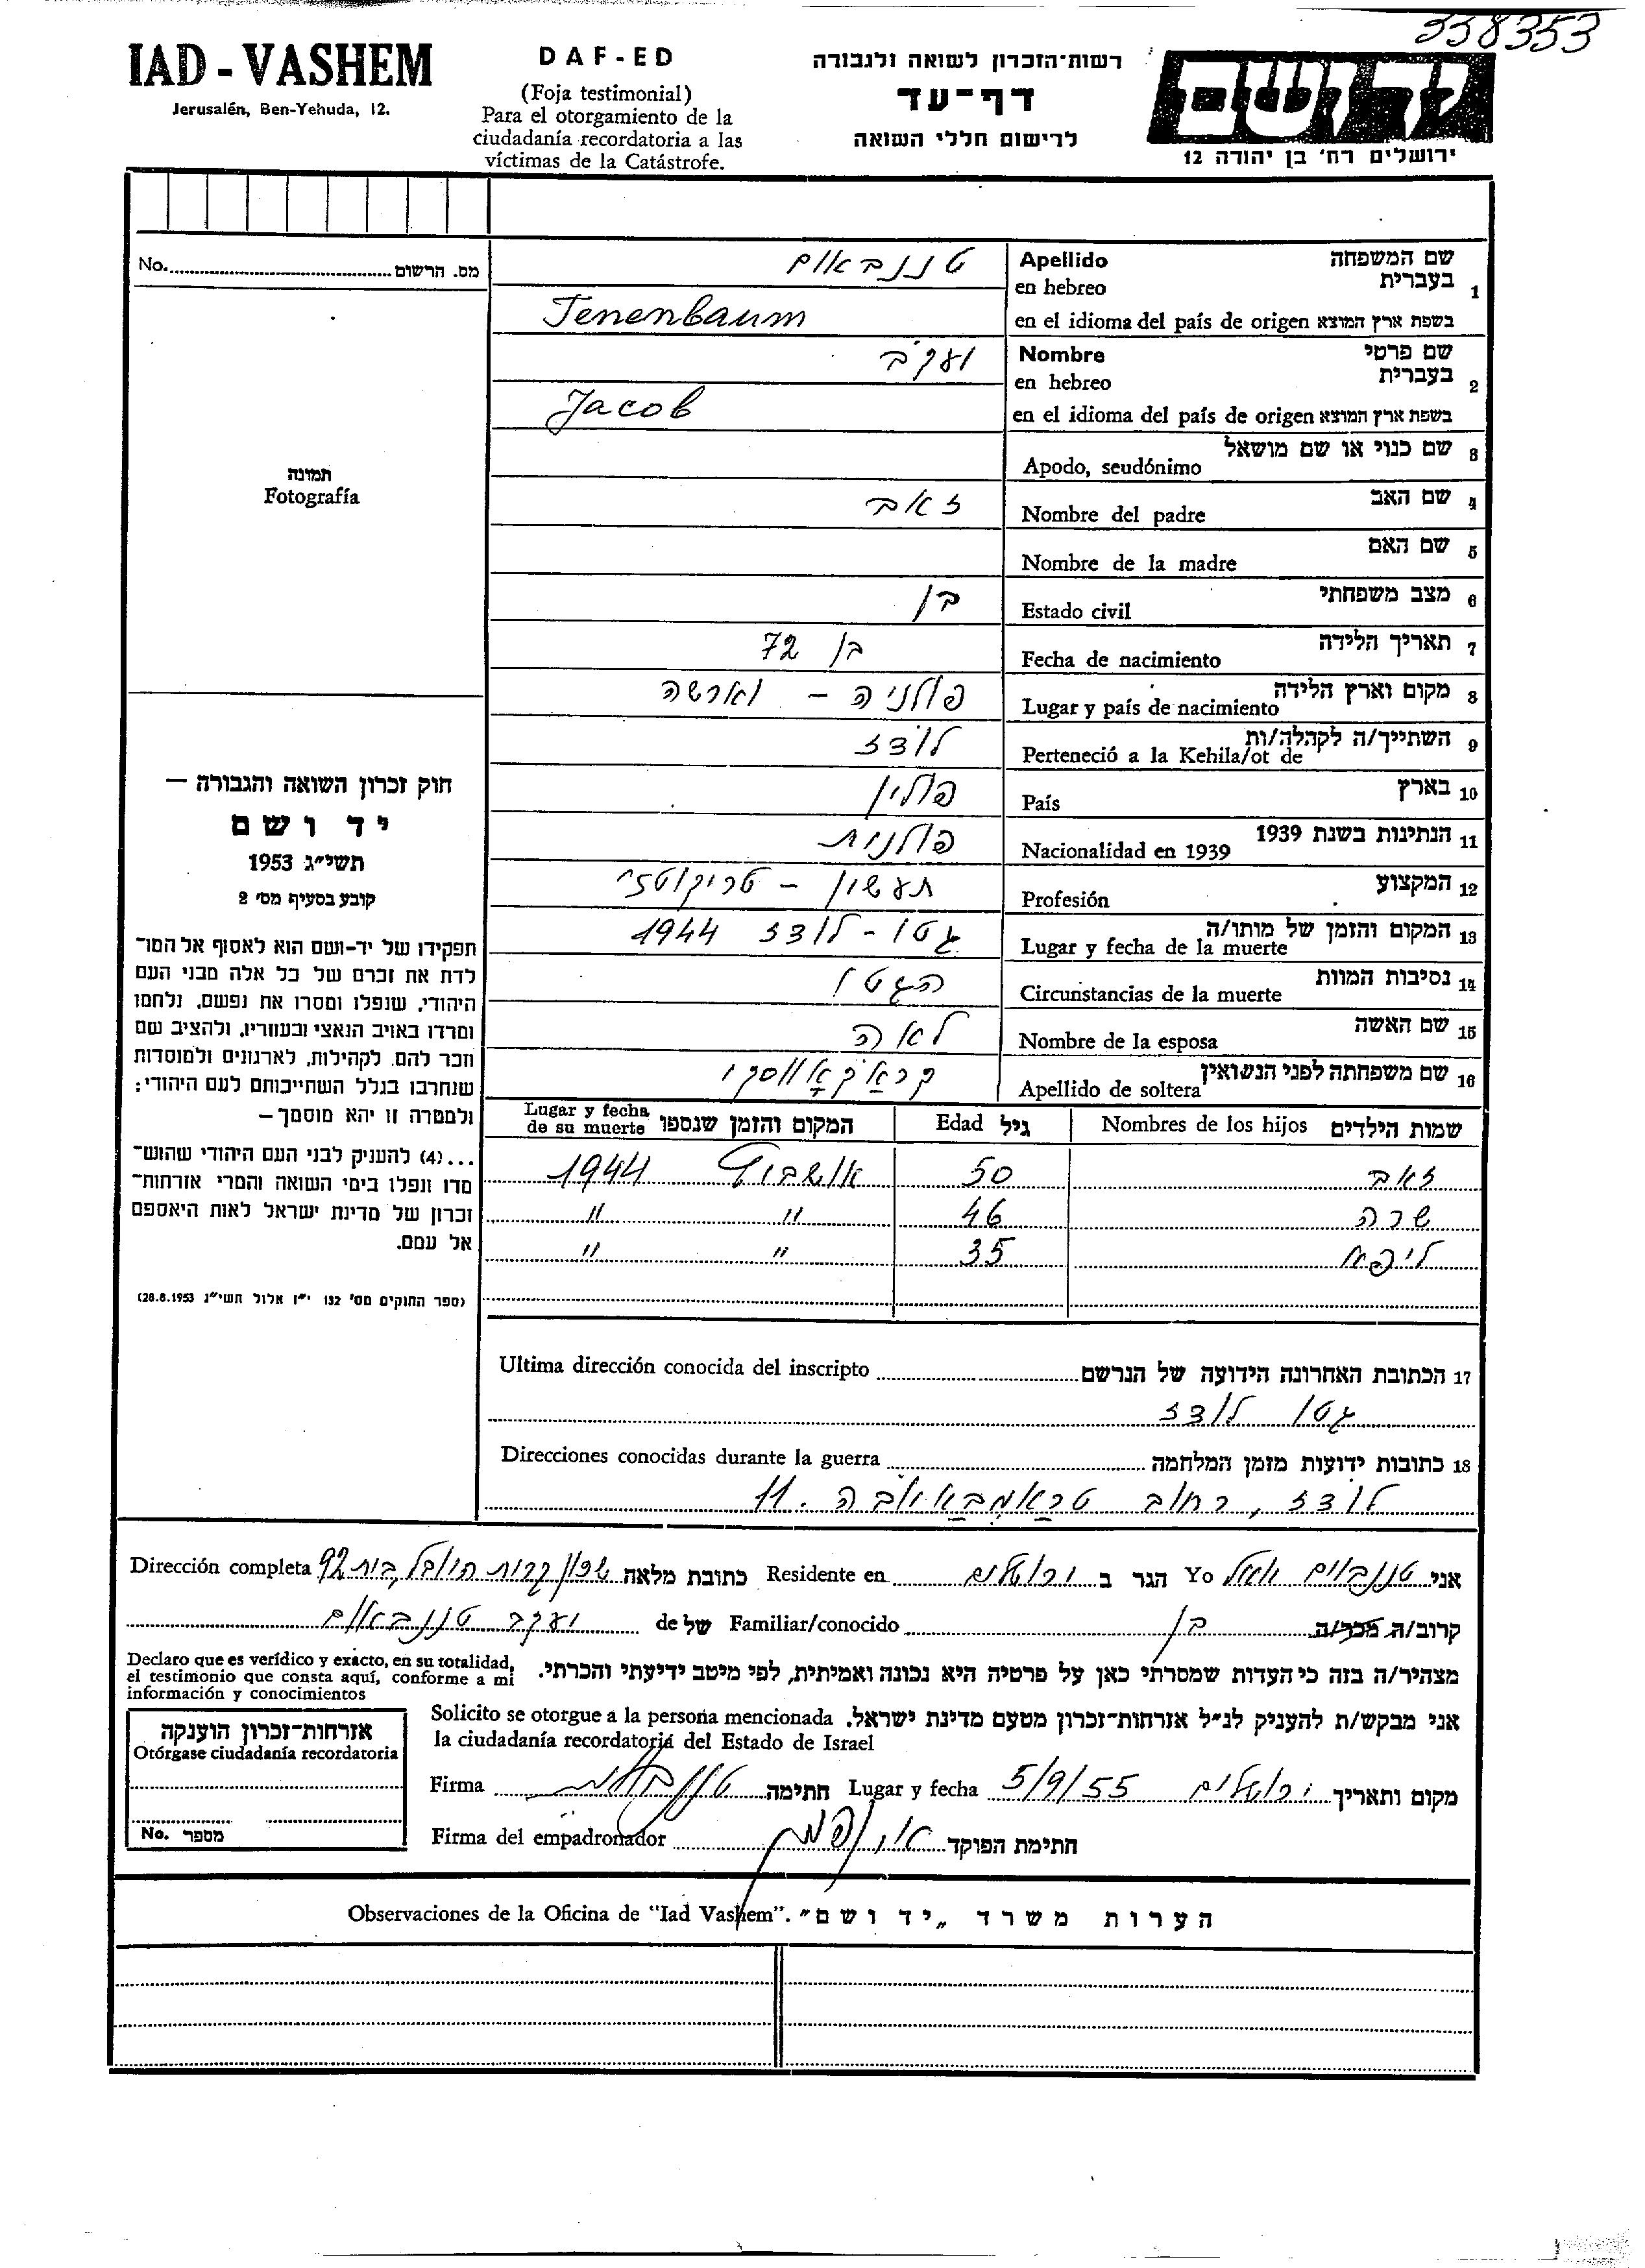 338353
IAD - VASHEM
Jerusalén, Ben-Yehuda, 12.
DAF-ED
(Foja testimonial)
Para el otorgamiento de la
ciudadanía recordatoria a las
víctimas de la Catástrofe.
רשות־הזכרון לשואה ולגבורה
דף־עד
לרישום חללי השואה
ידושם
ירושלים רח' בן יהודה 12
No. מס. הרשום
תמונה
Fotografía
1 שם המשפחה Apellido
בעברית en hebreo טננבאום
בשפת ארץ המוצא en el idioma del país de origen Tenenbaum
2 שם פרטי Nombre
בעברית en hebreo יעקב
בשפת ארץ המוצא en el idioma del país de origen Jacob
3 שם כנוי או שם מושאל Apodo, seudónimo
4 שם האב Nombre del padre זאב
5 שם האם Nombre de la madre
6 מצב משפחתי Estado civil בן
7 תאריך הלידה Fecha de nacimiento בן 72
8 מקום וארץ הלידה Lugar y país de nacimiento פולניה - וארשה
9 השתייך/ה לקהלה/ות Perteneció a la Kehila/ot de לודז
10 בארץ País פולין
11 הנתינות בשנת 1939 Nacionalidad en 1939 פולנית
12 המקצוע Profesión תעשין - טריקוטז'
13 המקום והזמן של מותו/ה Lugar y fecha de la muerte גטו - לודז 1944
14 נסיבות המוות Circunstancias de la muerte הגטו
15 שם האשה Nombre de la esposa לאה
16 שם משפחתה לפני הנשואין Apellido de soltera קראקאווסקי
שמות הילדים Nombres de los hijos גיל Edad המקום והזמן שנספו Lugar y fecha de su muerte
זאב 50 אושביץ 1944
שרה 46 " "
ליפא 35 " "
חוק זכרון השואה והגבורה —
יד ושם
תשי"ג 1953
קובע בסעיף מס' 2
תפקידו של יד־ושם הוא לאסוף אל המו־
לדת את זכרם של כל אלה מבני העם
היהודי, שנפלו ומסרו את נפשם, נלחמו
ומרדו באויב הנאצי ובעוזריו, ולהציב שם
וזכר להם, לקהילות, לארגונים ולמוסדות
שנחרבו בגלל השתייכותם לעם היהודי;
ולמטרה זו יהא מוסמך —
...(4) להעניק לבני העם היהודי שהוש־
מדו ונפלו בימי השואה והמרי אזרחות־
זכרון של מדינת ישראל לאות היאספם
אל עמם.
(ספר החוקים מס' 132 י"ז אלול תשי"ג 28.8.1953)
17 הכתובת האחרונה הידועה של הנרשם Ultima dirección conocida del inscripto
גטו לודז
18 כתובות ידועות מזמן המלחמה Direcciones conocidas durante la guerra
לודז, רחוב טראמבאיובה 11.
אני טננבוים Yo הגר ב ירושלים Residente en כתובת מלאה שכון קרית היובל, בית 92 Dirección completa
קרוב/ה מכר/ה בן Familiar/conocido של de יעקב טננבאום
מצהיר/ה בזה כי העדות שמסרתי כאן על פרטיה היא נכונה ואמיתית, לפי מיטב ידיעתי והכרתי.
Declaro que es verídico y exacto, en su totalidad,
el testimonio que consta aquí, conforme a mi
información y conocimientos
אני מבקש/ת להעניק לנ"ל אזרחות־זכרון מטעם מדינת ישראל. Solicito se otorgue a la persona mencionada
la ciudadanía recordatoria del Estado de Israel
מקום ותאריך ירושלים 5/9/55 Lugar y fecha חתימה Firma
חתימת הפוקד Firma del empadronador
אזרחות־זכרון הוענקה
Otórgase ciudadanía recordatoria
No. מספר
הערות משרד „יד ושם". Observaciones de la Oficina de "Iad Vashem".